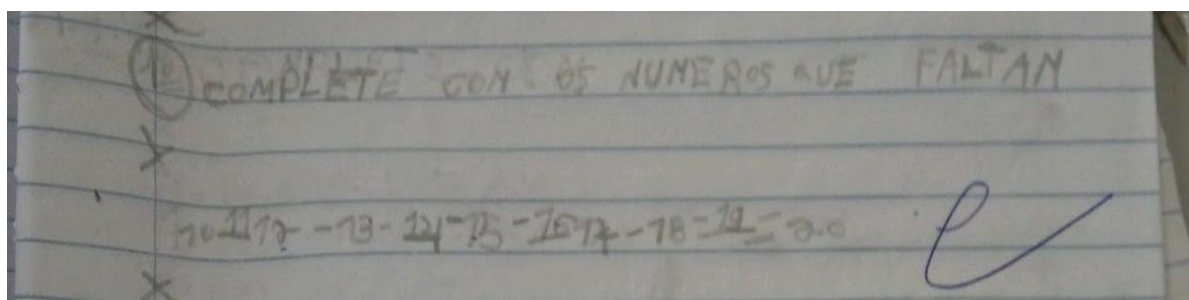 1 COMPLETE CON OS NUMEROS QUE FALTAN
10 11 12 - 13 - 14 - 15 - 16 17 - 18 - 19 - 20